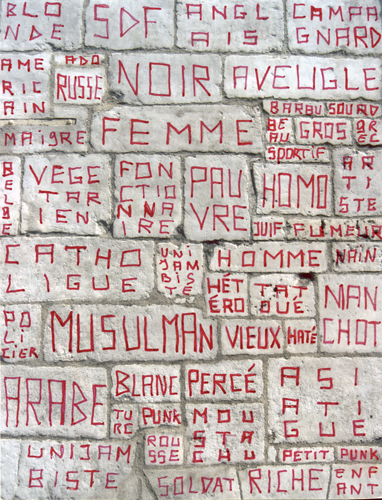 BLO
NDE
SDF
ANGL
AIS
CAMPA
GNARD
AME
RIC
AIN
ADO
RUSSE
NOIR
AVEUGLE
BARBU
SOURD
MAIGRE
FEMME
BE
AU
GROS
GR
EC
SPORTIF
B
E
L
G
E
VEGE
TAR
IEN
FON
CTIO
NNA
IRE
PAU
VRE
HOMO
AR
TI
STE
JUIF
FUMEUR
CATHO
LIQUE
UNI
JAM
BIS
TE
HOMME
NAIN
HÉT
ÉRO
TAT
OUÉ
MAN
CHOT
PO
LI
CIER
MUSULMAN
VIEUX
HATÉ
ARABE
BLANC
PERCÉ
ASI
ATI
QUE
PUNK
MOU
STA
CHU
ROU
SSE
UNIJAM
BISTE
PETIT
PUNK
SOLDAT
RICHE
ENF
ANT